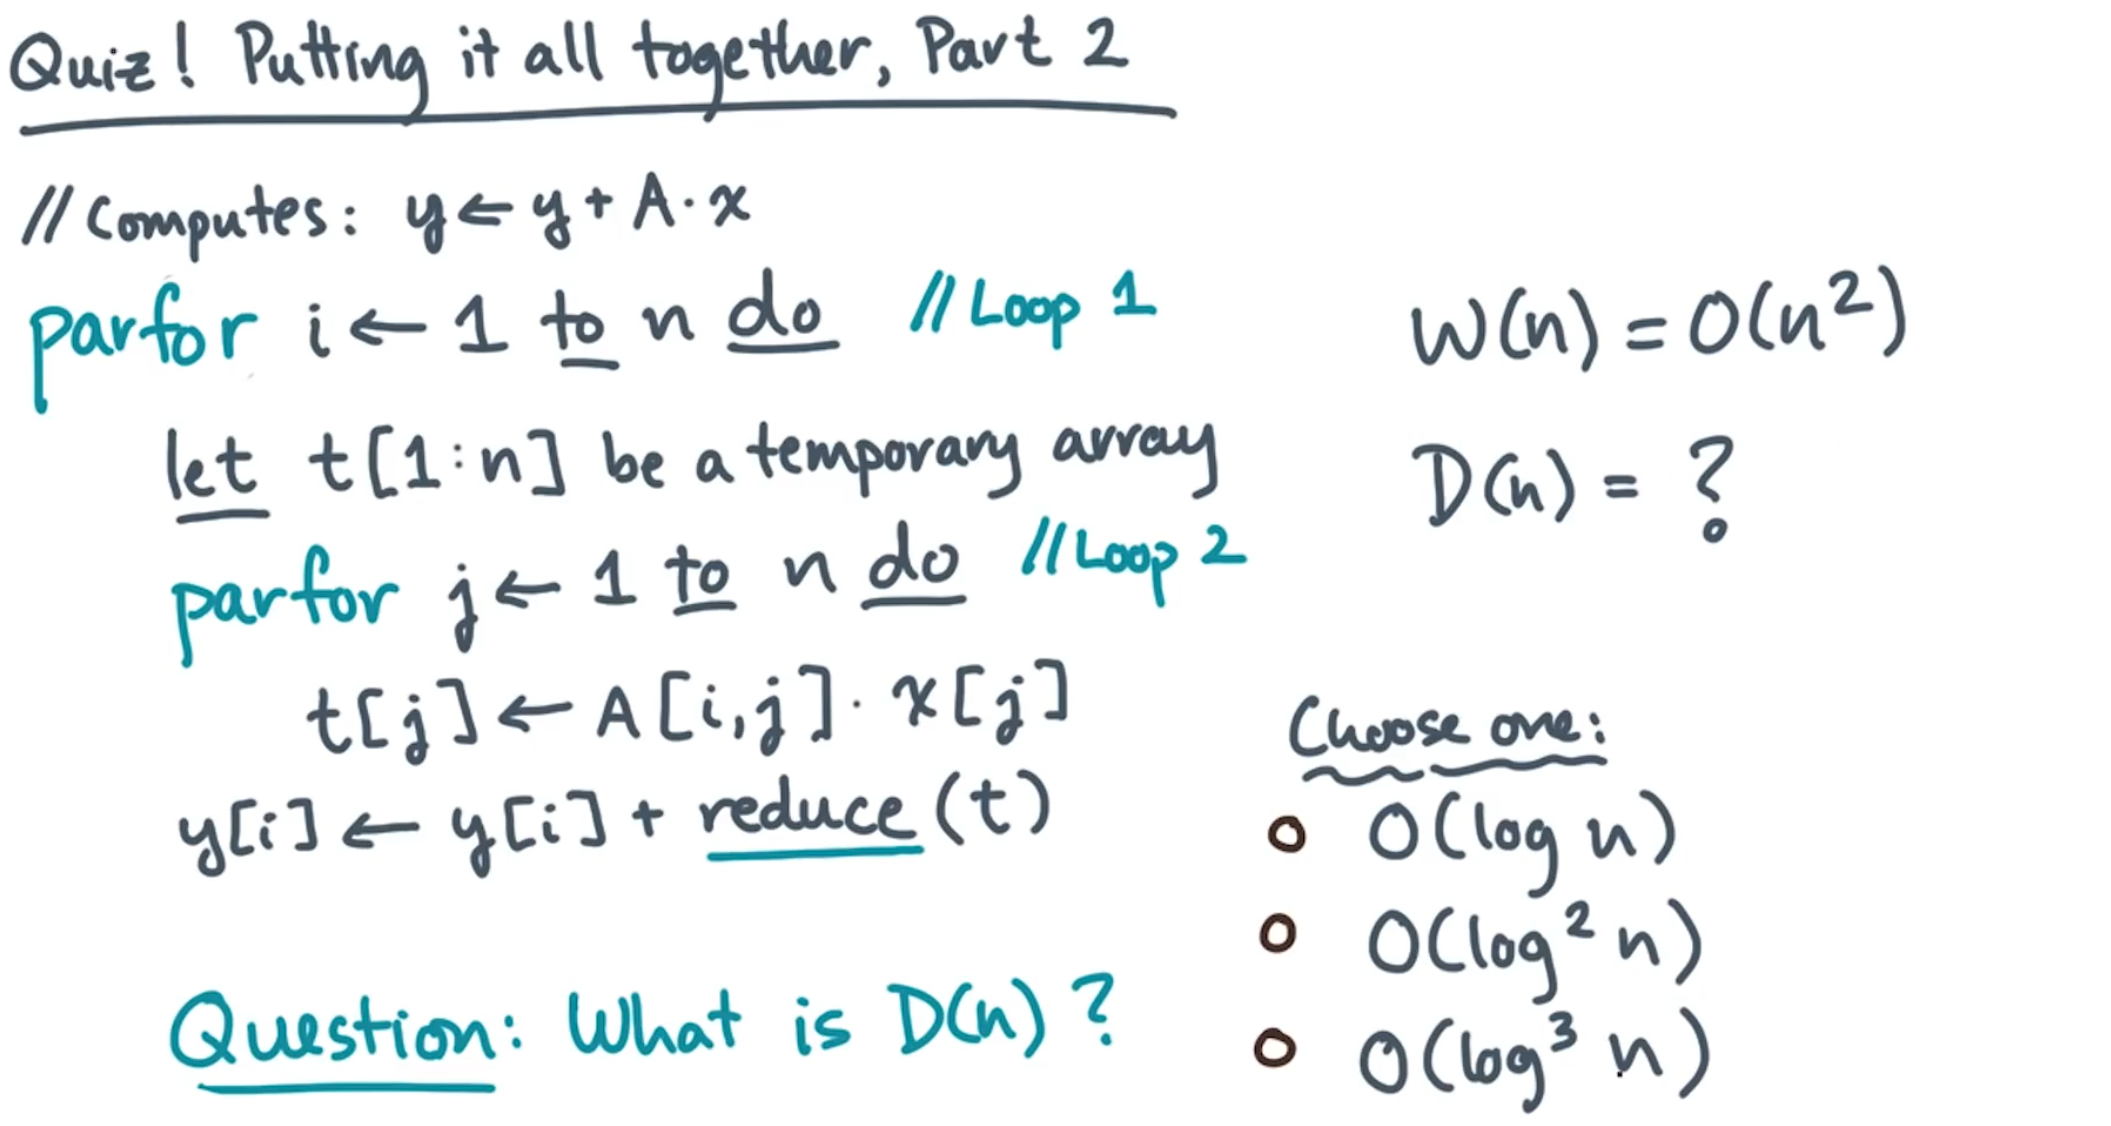 Quiz! Putting it all together, Part 2
// Computes: y ← y + A · x
parfor i ← 1 to n do // Loop 1
let t[1:n] be a temporary array
parfor j ← 1 to n do // Loop 2
t[j] ← A[i,j] · x[j]
y[i] ← y[i] + reduce(t)
Question: What is D(n)?
W(n) = O(n²)
D(n) = ?
Choose one:
O(log n)
O(log² n)
O(log³ n)